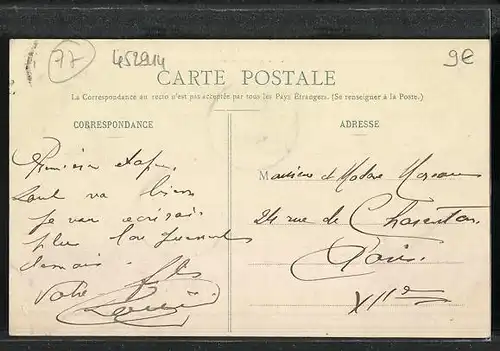 77
452914
9€
CARTE POSTALE
La Correspondance au recto n'est pas acceptée par tous les Pays Étrangers. (Se renseigner à la Poste.)
CORRESPONDANCE
Première étape
tout va bien
je vous écrirai
plus longuement
demain.
Votre fils
ADRESSE
Monsieur et Madame Moreau
24 rue de Charenton
Paris.
XIIe